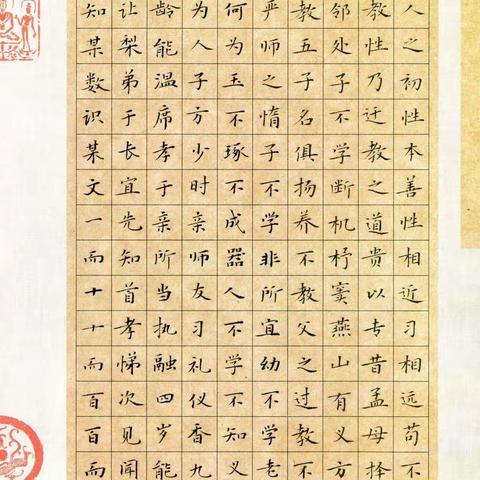 人之初性本善性相近习相远苟不
教性乃迁教之道贵以专昔孟母择
邻处子不学断机杼窦燕山有义方
教五子名俱扬养不教父之过教不
严师之惰子不学非所宜幼不学老
何为玉不琢不成器人不学不知义
为人子方少时亲师友习礼仪香九
龄能温席孝于亲所当执融四岁能
让梨弟于长宜先知首孝悌次见闻
知某数识某文一而十十而百百而